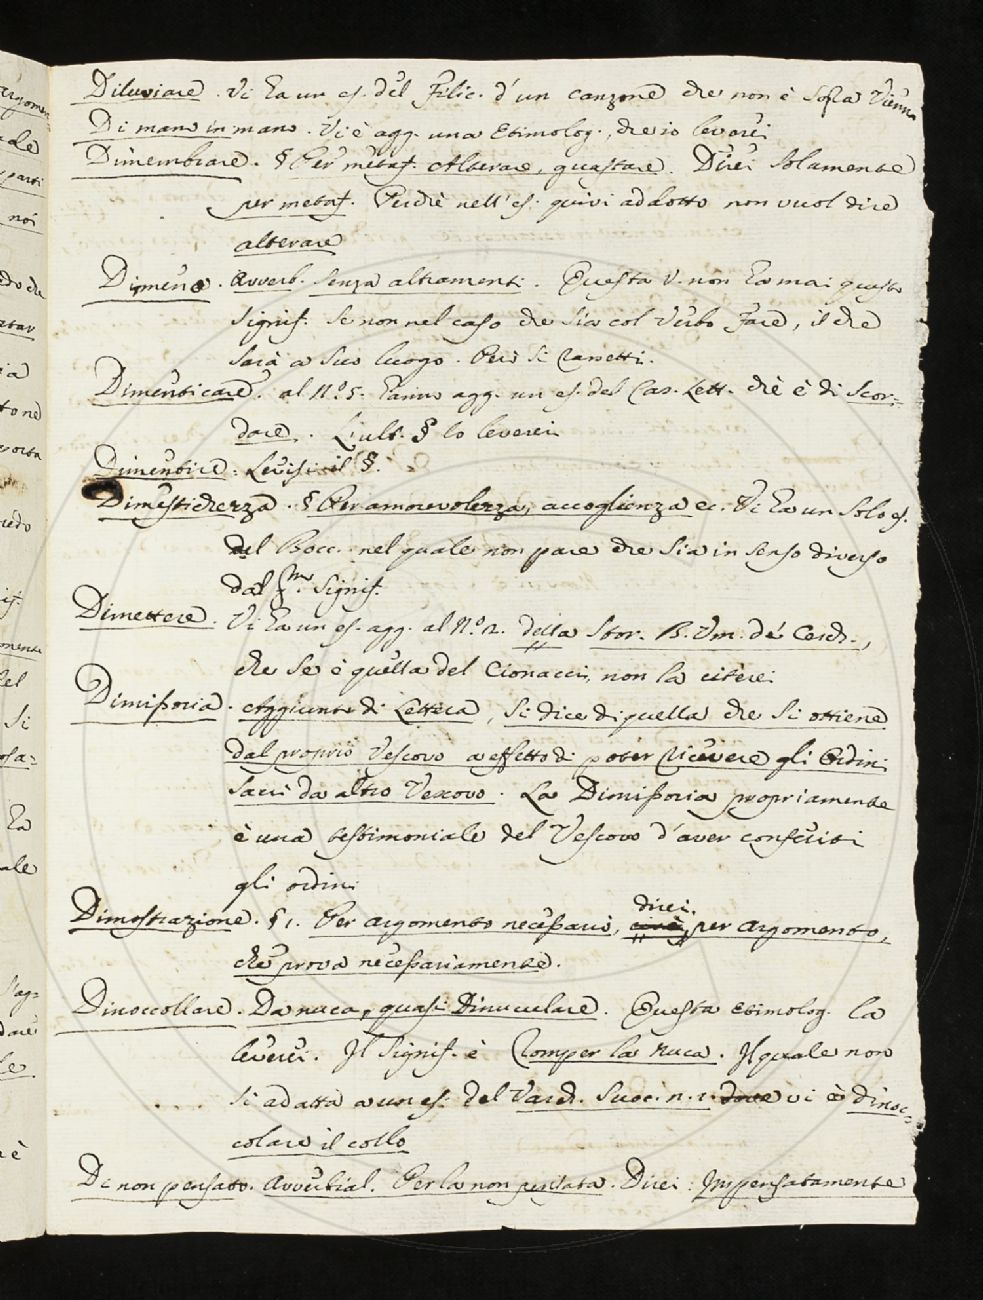 Diluviare. Vi ha un es. del Filic. d'un canzone che non è sopra Vienna
Di mano in mano. Vi è agg. una Etimolog., che io leverei
Dimembrare. § Per metaf. Alterare, guastare. Direi solamente
per metaf. Perchè nell'es. quivi addotto non vuol dire
alterare
Dimeno. Avverb. senza altramenti. Questa V. non ha mai questo
signif. se non nel caso che sia col Verbo Fare, il che
sarà a suo luogo. Però si rassetti.
Dimenticare. al N.º 5. hanno agg. un es. del Cas. Lett. che è di Scor=
dare. L'ult. § lo leverei
Dimentire. Levisi il §.
Dimestichezza. § Per amorevolezza, accoglienza ec. Vi ha un solo es.
del Bocc. nel quale non pare che sia in senso diverso
dal pmo. signif.
Dimettere. Vi ha un es. agg. al N.º 2. della Stor. B. Um. de' Cerch.,
che se è quella del Cionacci, non la citerei
Dimissoria. Aggiunto di Lettera, si dice di quella che si ottiene
dal proprio Vescovo a effetto di poter ricevere gli Ordini
sacri da altro Vescovo. La Dimissoria propriamente
è una testimoniale del Vescovo d'aver conferiti
gli ordini
Dimostrazione. § 1. Per argomento necessario, direi, per argomento,
che prova necessariamente.
Dinoccollare. Da nuca, quasi Dinuculare. Questa etimolog. la
leverei. Il signif. è Romper la nuca. Il quale non
si adatta a un es. del Varch. Suoc. n. 1. dove vi è dinoc=
colare il collo
Di non pensato. Avverbial. Per la non pensata. Direi: Impensatamente
argomen
parti
noi
Si
ha
ale
è